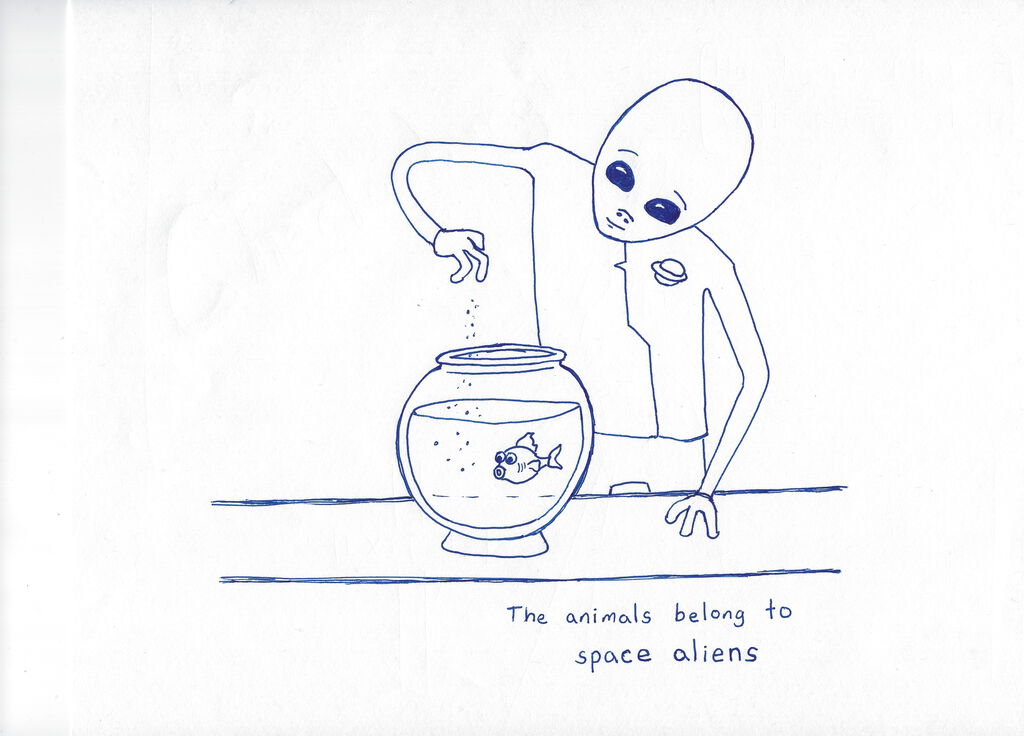 The animals belong to
space aliens